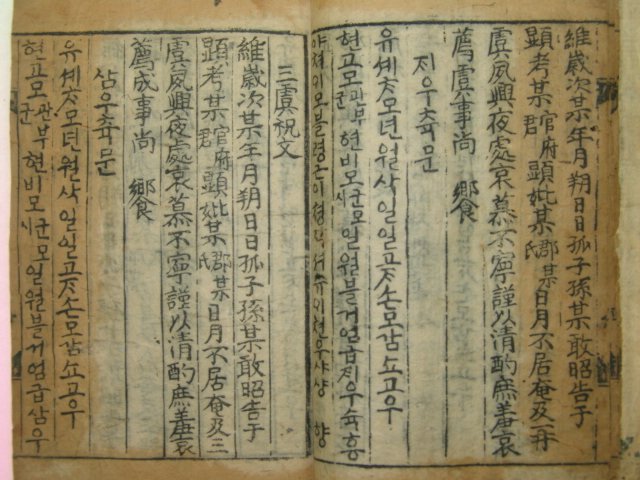 維歲次某年月朔日日孤子孫某敢昭告于
顯考某官府君顯妣某郡某氏日月不居奄及再
虞夙興夜處哀慕不寧謹以清酌庶羞哀
薦虞事尚 饗
지우츅문
유셰ᄎᆞ모년월삭일일고ᄌᆞ손모감쇼고우
현고모관부군현비모군시일월블거엄급지우슉흥
야쳐이모블령근이쳥작셔슈이쳔우사샹 향
三虞祝文
維歲次某年月朔日日孤子孫某敢昭告于
顯考某官府君顯妣某郡某氏日月不居奄及三
虞夙興夜處哀慕不寧謹以清酌庶羞哀
薦成事尚 饗
삼우츅문
유셰ᄎᆞ모년월삭일일고ᄌᆞ손모감쇼고우
현고모관부군현비모군시모일월블거엄급삼우